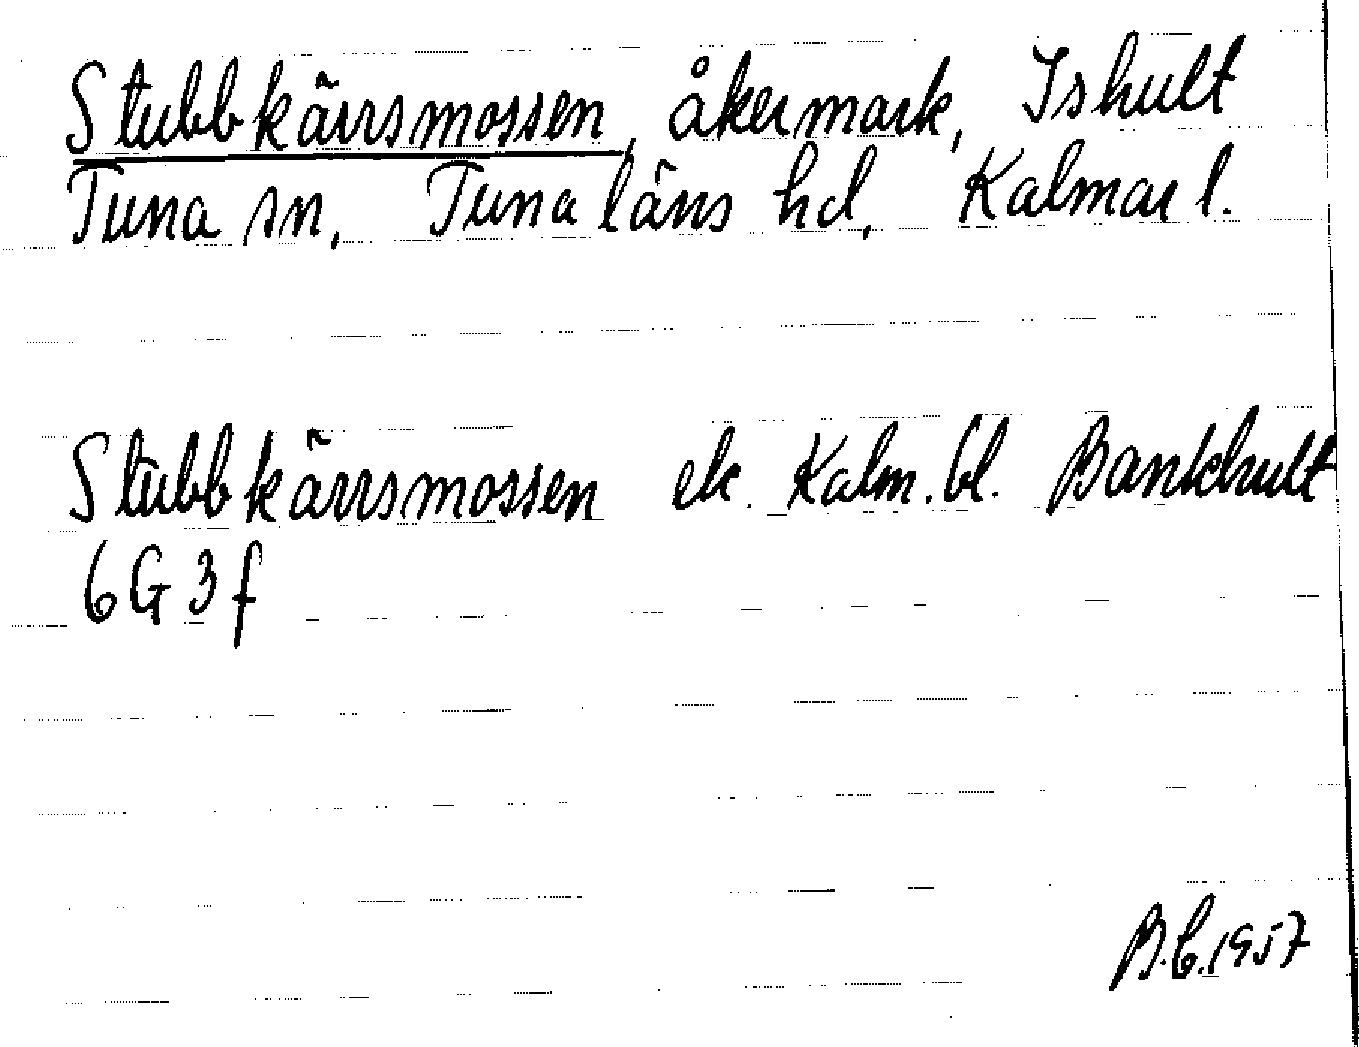 Stubbkärrsmossen, åkermark, Ishult
Tuna sn, Tunaläns hd, Kalmar l.
Stubbkärrsmossen ek. Kalm.bl. Bankhult
6G3f
B.C.1957